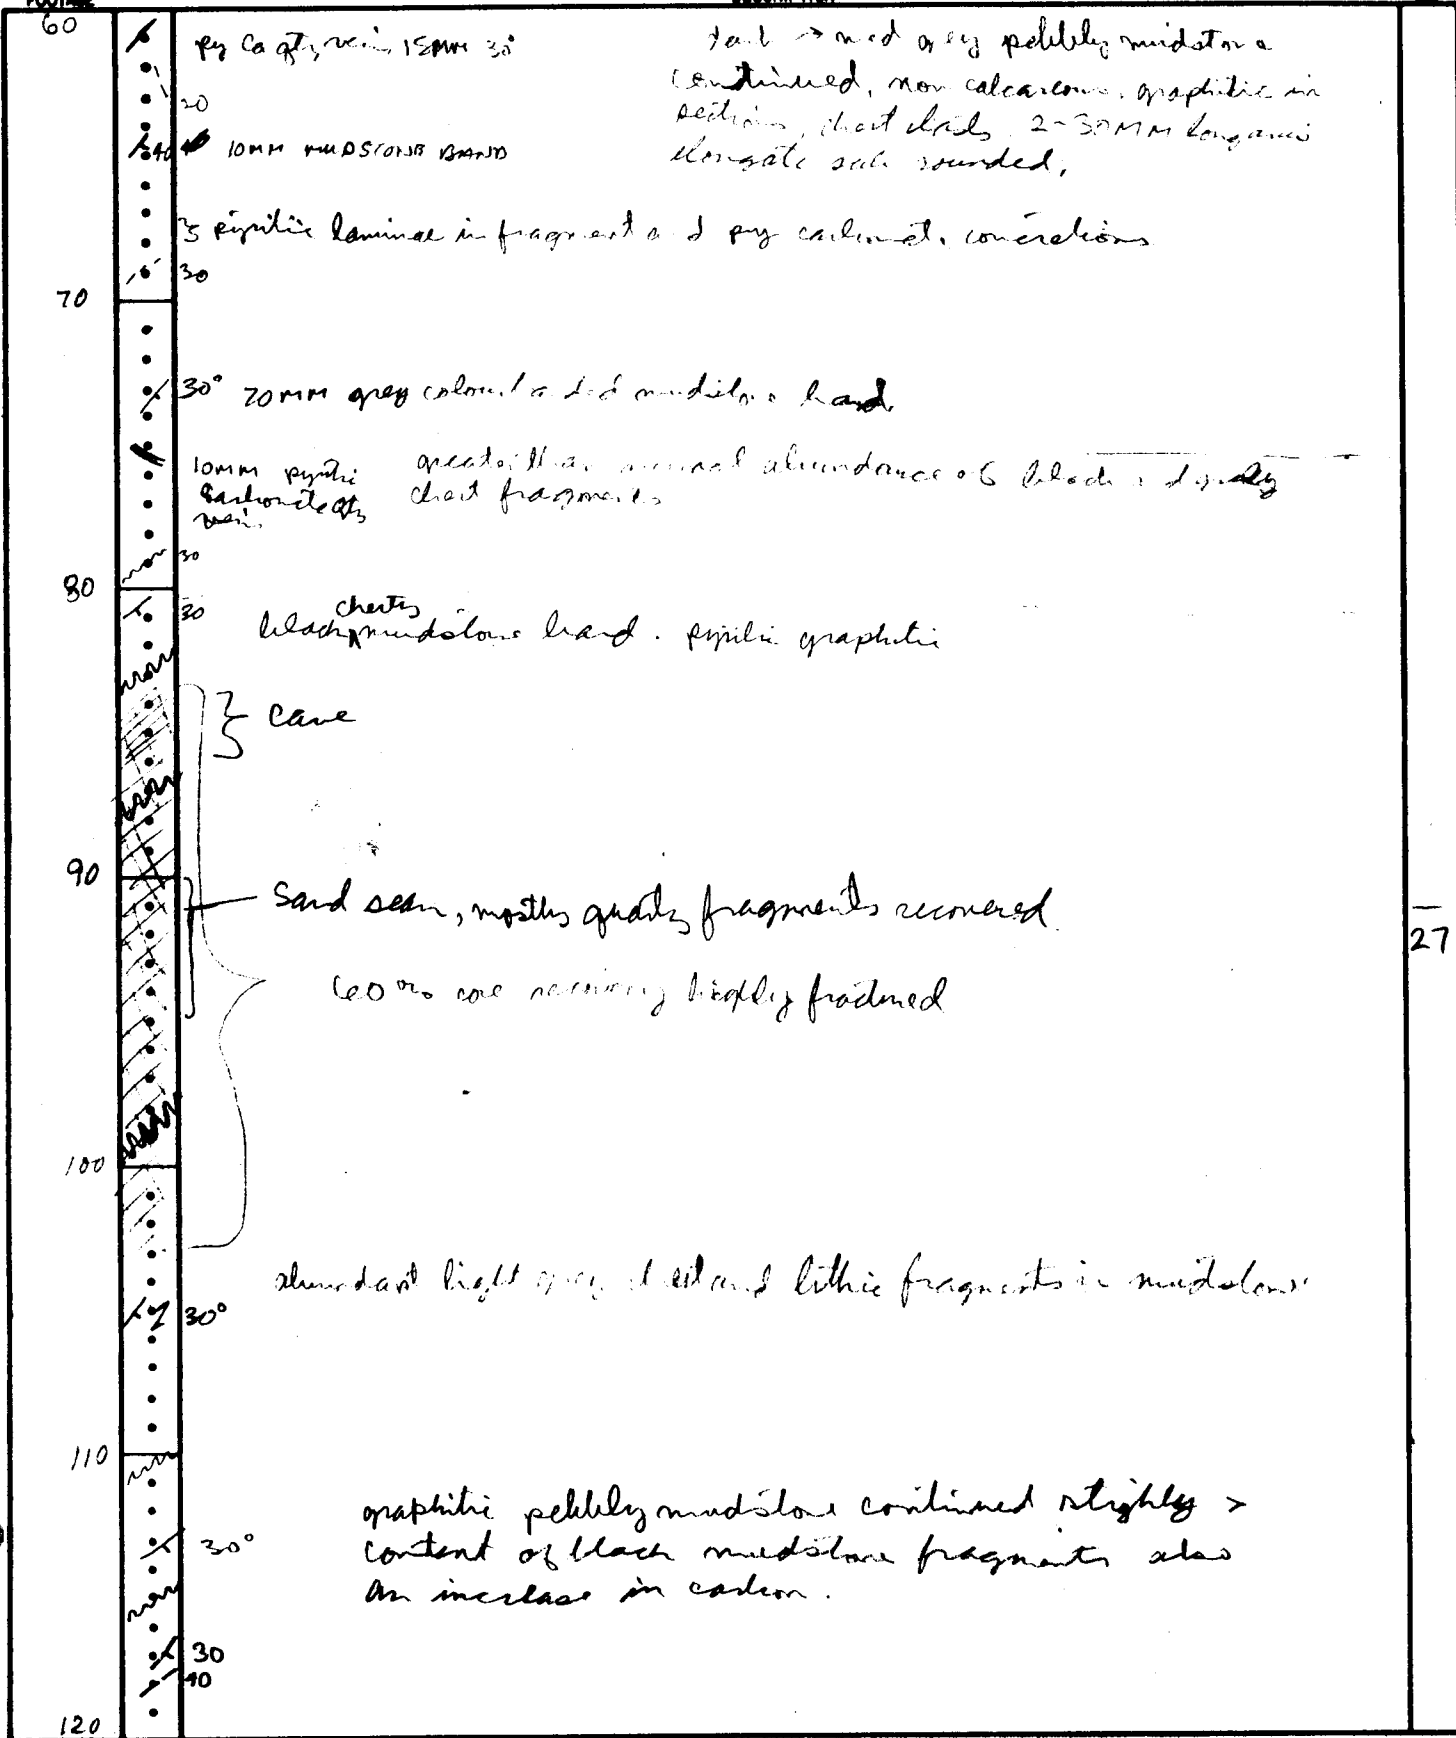 60
py Ca qtz vein 15MM 30°
→ med grey pebbly mudstone
continued, non calcareous, graphitic in
sections, chert clasts 2-30MM long axis
elongate sub rounded,
20
40 10MM MUDSTONE BAND
pyritic laminae in fragment and py carbonate concretions
30
70
30° 70MM grey mudstone band
10MM pyritic greater than normal abundance of black and grey
carbonate qtz chert fragments
vein
30
80
30
cherty
black mudstone band. pyritic graphitic
cave
90
Sand seam, mostly quartz fragments recovered
27
60% core recovery highly fractured
100
abundant light grey chert and lithic fragments in mudstone
30°
110
graphitic pebbly mudstone continued slightly >
30°
content of black mudstone fragments also
an increase in carbon.
30
40
120